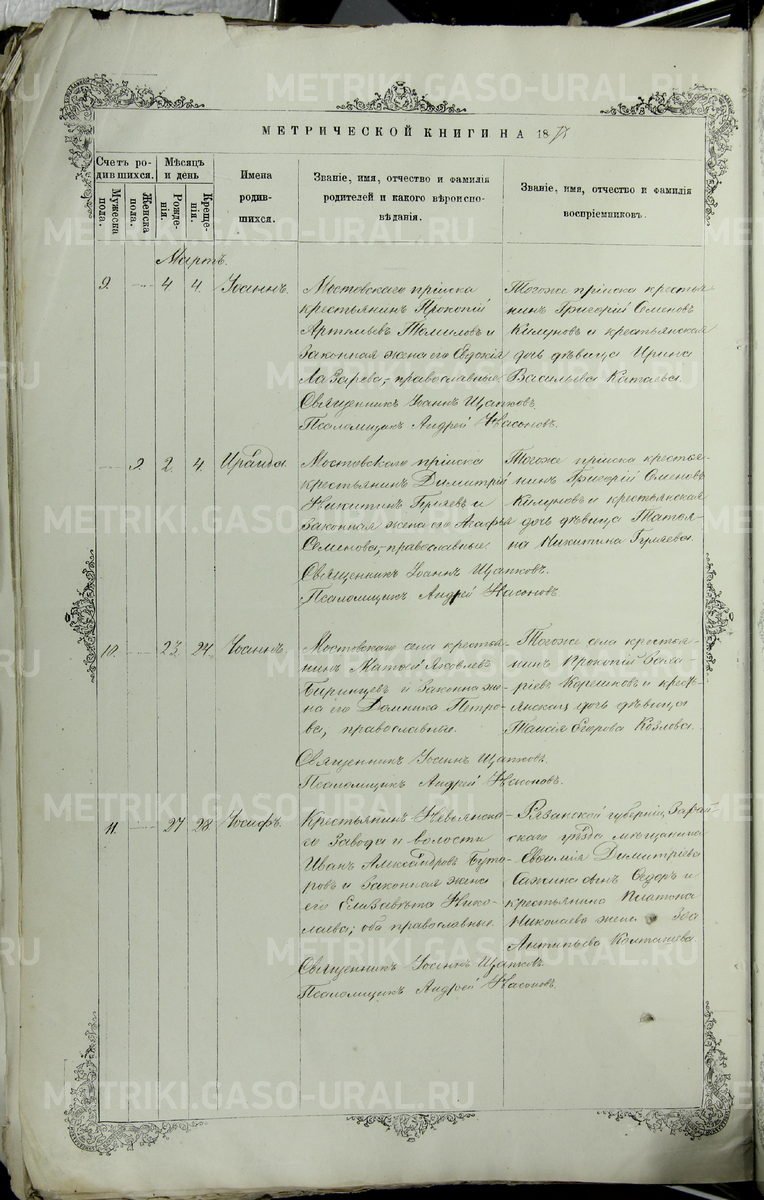 METRIKI.GASO-URAL.RU
МЕТРИЧЕСКОЙ КНИГИ НА 187
Счетъ ро-
дившихся.
Мѣсяцъ
и день
Мужеска
пола.
Женска
пола.
Рожде-
нія.
Креще-
нія.
Имена
родив-
шихся.
Званіе, имя, отчество и фамилія
родителей и какого вѣроиспо-
вѣданія.
Званіе, имя, отчество и фамилія
воспріемниковъ.
Мартъ.
9. 4 4. Іоаннъ.
Мостовскаго пріиска
крестьянинъ Прокопій
Артемьевъ Томиловъ и
законная жена его Евдокія
Лазарева, православные.
Священникъ Іоаннъ Щапковъ.
Псаломщикъ Андрей Насоновъ.
Тогоже пріиска крестья-
нинъ Григорій Семеновъ
и крестьянская
дочь дѣвица Ирина
Васильева Катаева.
9. 2. 4. Ираида.
Мостовскаго пріиска
крестьянинъ Димитрій
Никитинъ и
законная жена его Агафья
Семенова, православные.
Священникъ Іоаннъ Щапковъ.
Псаломщикъ Андрей Насоновъ.
Тогоже пріиска крестья-
нинъ Григорій Семеновъ
и крестьянская
дочь дѣвица Татья-
на Никитина
10. 23. 24. Іоаннъ.
Мостовскаго села крестья-
нинъ Матѳей Яковлевъ
Биринцевъ и законная же-
на его Домника Петро-
ва, православные.
Священникъ Іоаннъ Щапковъ.
Псаломщикъ Андрей Насоновъ.
Тогоже села крестья-
нинъ Прокопій Вале-
ріевъ Корешковъ и крест-
янская дочь дѣвица
Таисія Егорова Козлова.
11. 27 28. Іосифъ.
Крестьянинъ Невьянска-
го завода и волости
Иванъ Александровъ Буто-
ровъ и законная жена
его Елизавета Нико-
лаева; оба православные.
Священникъ Іоаннъ Щапковъ.
Псаломщикъ Андрей Насоновъ.
Рязанской губерніи, Зарай-
скаго уѣзда мѣщанина
Димитріева
Сажина сынъ Ѳедоръ и
крестьянина Платона
Николаева жена
Антипьева Колташева.